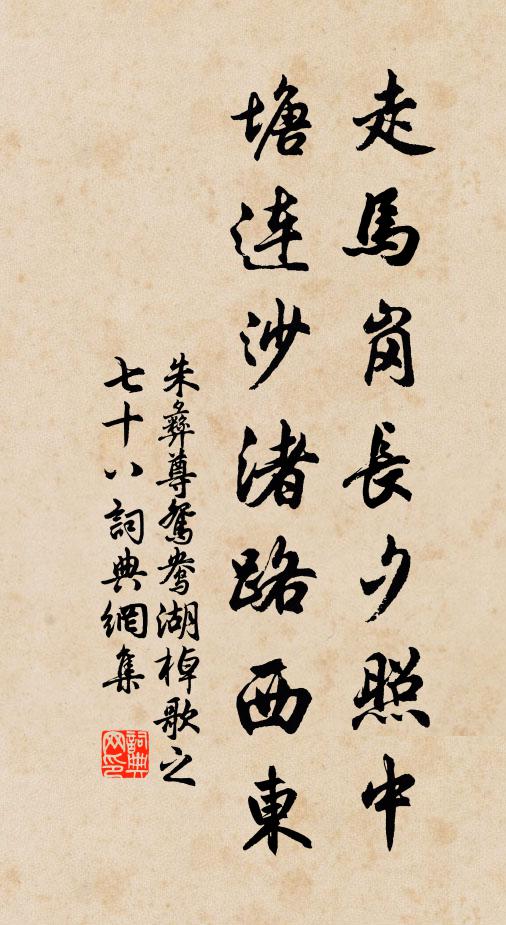 走馬崗長夕照中
塘連沙渚路西東
朱彝尊鴛鴦湖棹歌之
七十八詞典網集
詞典
网印